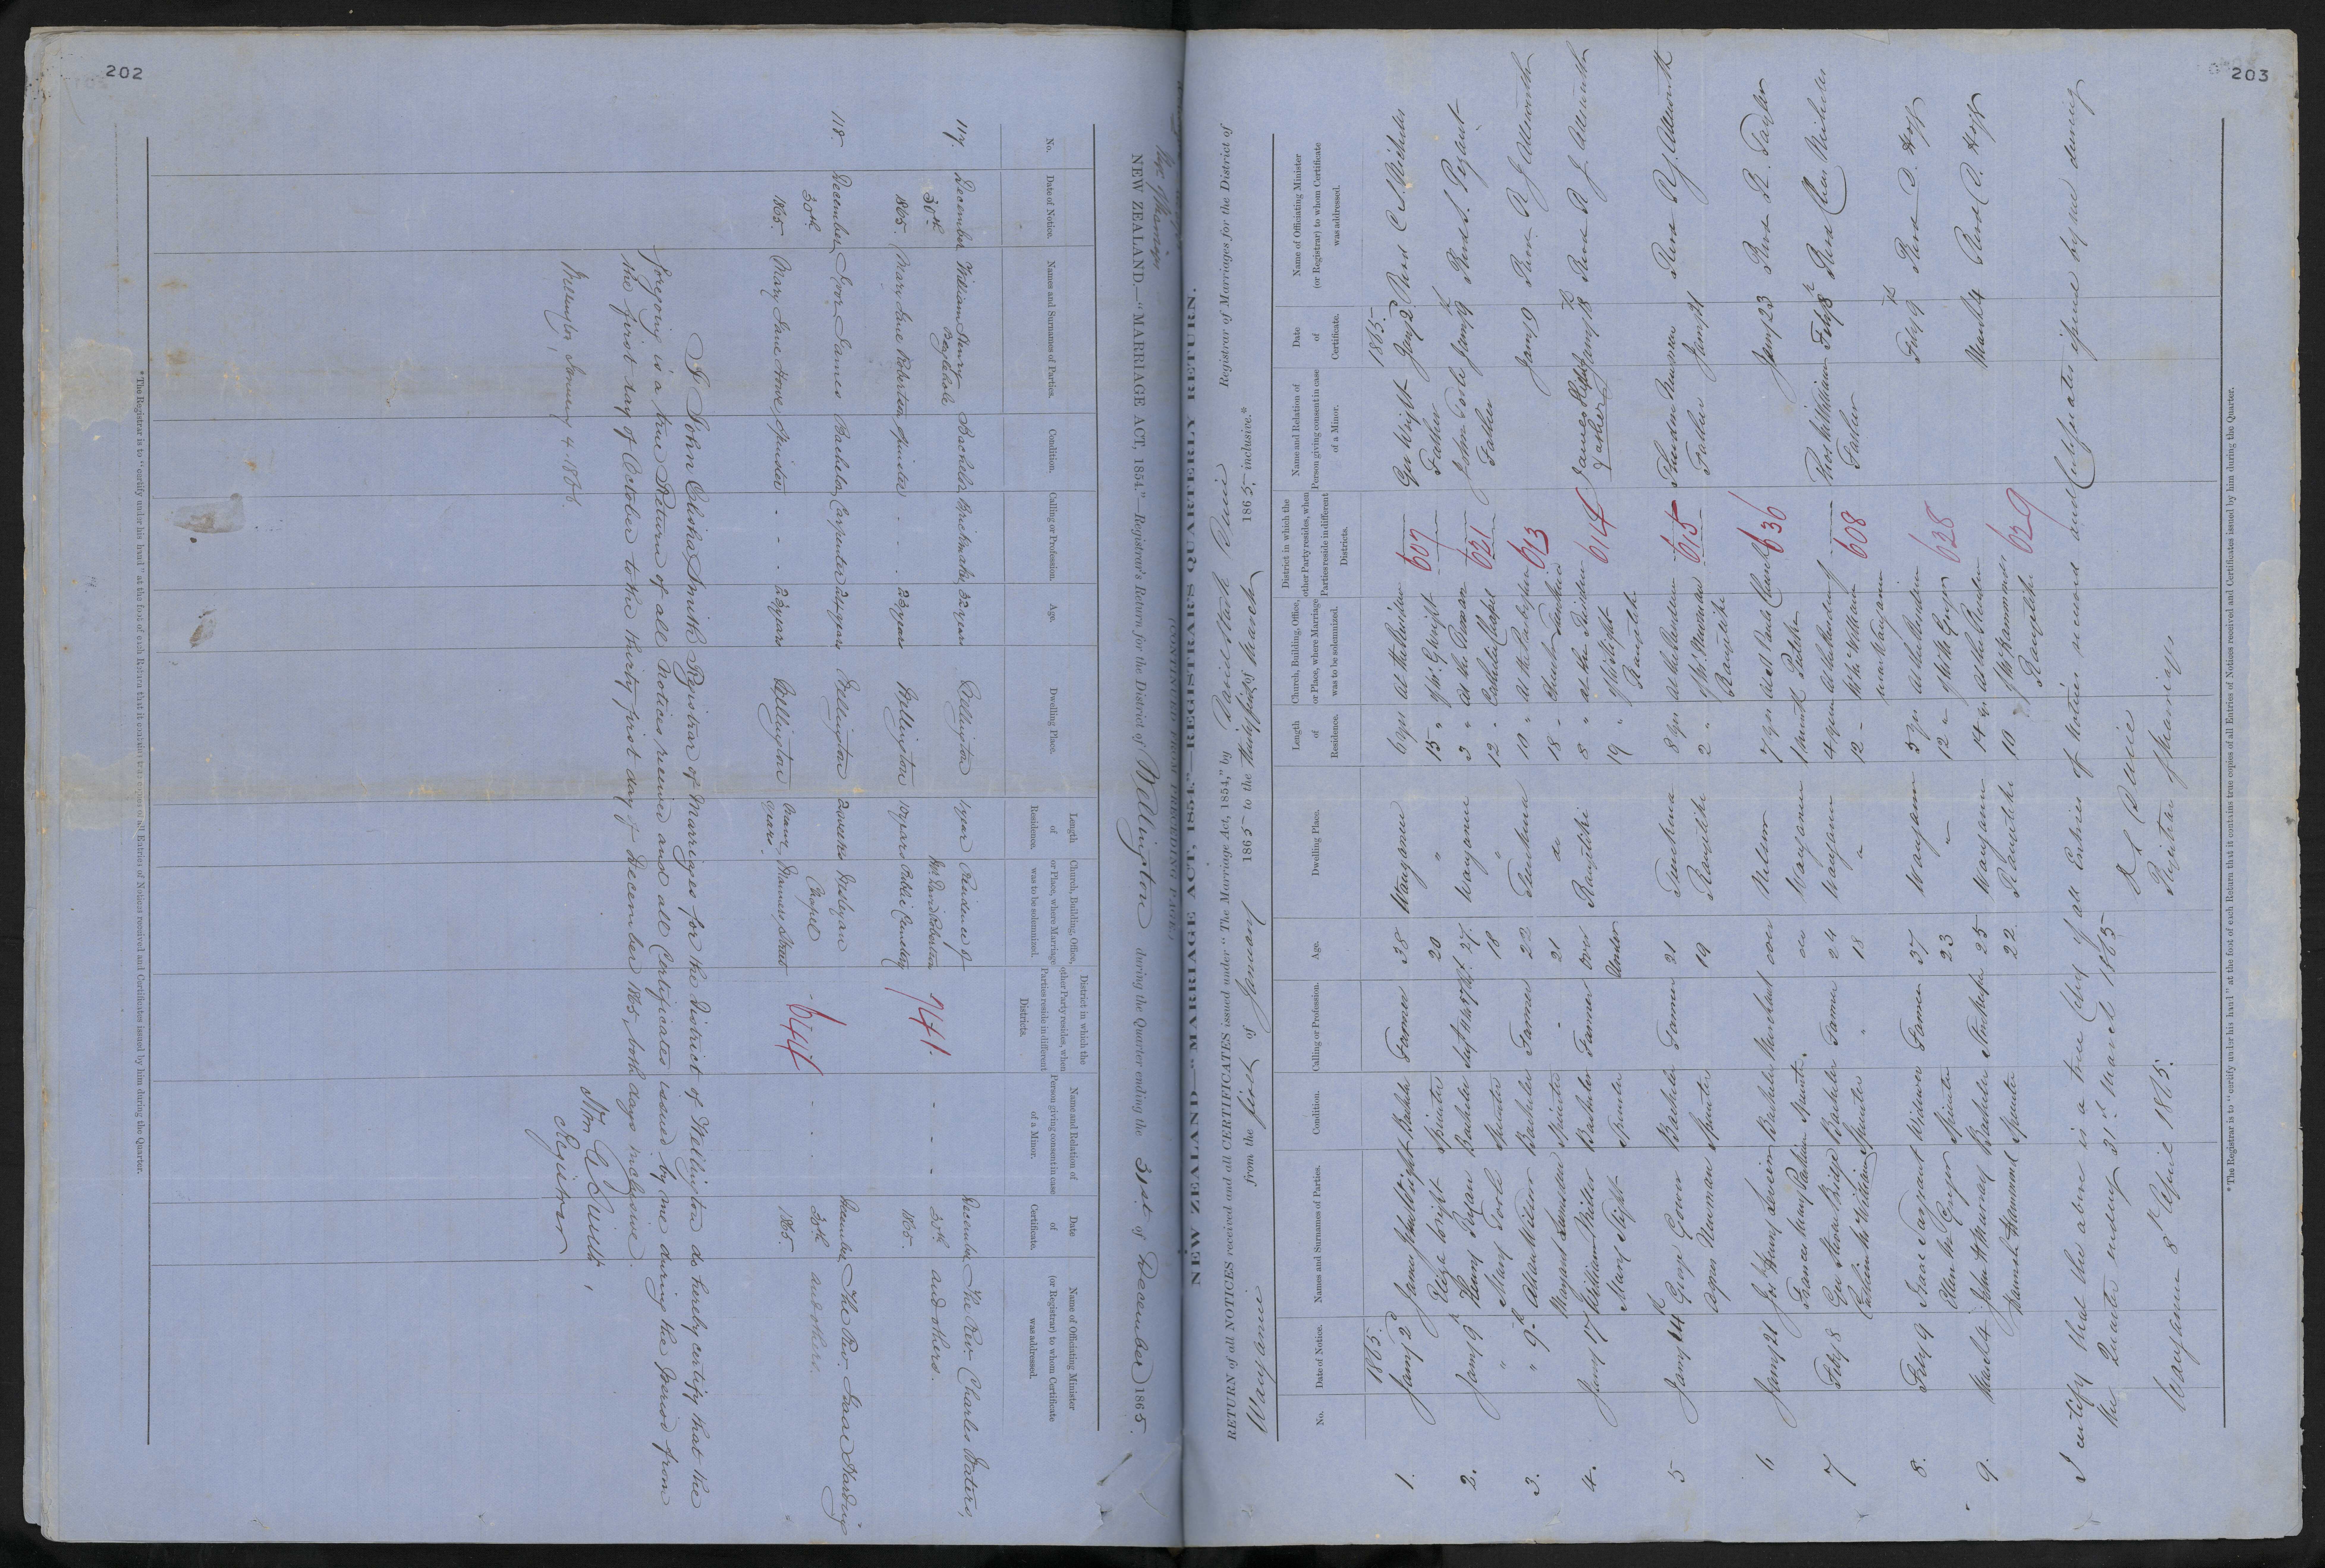 202
NEW ZEALAND.—"MARRIAGE ACT, 1854."—Registrar's Return for the District of Wellington during the Quarter ending the 31st of December 1865.
No.
Date of Notice.
Names and Surnames of Parties.
Condition.
Calling or Profession.
Age.
Dwelling Place.
Length of Residence.
Church, Building, Office, or Place, where Marriage was to be solemnized.
District in which the other Party resides, when Parties reside in different Districts.
Name and Relation of Person giving consent in case of a Minor.
Date of Certificate.
Name of Officiating Minister (or Registrar) to whom Certificate was addressed.
117. December 30th 1865. William Henry Bachelor Brickmaker 32 years Wellington 1 year Residence of Mr David Roberton 741. December 30th 1865. The Rev. Charles Waters, and others.
Mary Jane Roberton Spinster 23 years Wellington 10 years
118 December 30th 1865. James Bachelor Carpenter 24 years Wellington 2 weeks Wesleyan Chapel Manners Street 644 December 30th 1865. The Rev. Isaac Harding and others.
Mary Jane Howe Spinster 23 years Wellington years.
I John Elisha Smith Registrar of Marriages for the District of Wellington do hereby certify that the
foregoing is a true Return of all Notices received and all Certificates issued by me during the Period from
the first day of October to the thirty first day of December 1865, both days inclusive.
Jno E Smith,
Registrar
Wellington, January 4. 1866.
*The Registrar is to "certify under his hand" at the foot of each Return that it contains true copies of all Entries of Notices received and Certificates issued by him during the Quarter.
203
NEW ZEALAND—"MARRIAGE ACT, 1854."—REGISTRAR'S QUARTERLY RETURN.
(CONTINUED FROM PRECEDING PAGE.)
RETURN of all NOTICES received and all CERTIFICATES issued under "The Marriage Act, 1854," by David Stark Durie Registrar of Marriages for the District of
Wanganui from the first of January 1865 to the thirty first of March 1865, inclusive.*
No.
Date of Notice.
Names and Surnames of Parties.
Condition.
Calling or Profession.
Age.
Dwelling Place.
Length of Residence.
Church, Building, Office, or Place, where Marriage was to be solemnized.
District in which the other Party resides, when Parties reside in different Districts.
Name and Relation of Person giving consent in case of a Minor.
Date of Certificate.
Name of Officiating Minister (or Registrar) to whom Certificate was addressed.
1865. 1865.
1. Jany 2d James Bachelor Farmer 38 Wanganui 6 yrs 607 Geo Wright Father Jany 2d Revd C. Nicholes
Wright Spinster 20 " 15 " of Mr. G Wright
2. Jany 9th Henry Bachelor 27 Wanganui 3 " 621 John Father Jany 9th Revd
Mary Spinster 18 " 12 " Catholic Chapel
3. " 9th Allan Milne Bachelor Farmer 22 Turakina 10 " 613 Jany 9 Revd R J Allsworth
Margaret Spinster 21 do 18 " Church Turakina
4. Jany 17 William Bachelor Farmer over Rangitikei 8 " at the Residence 614 James Father Jany 18 Revd R. J. Allsworth
Mary Spinster Under 19 " Rangitikei
5 Jany 14th George Gower Bachelor Farmer 21 Turakina 8 yrs at the Residence 615 Newman Father Jany 21 Revd R. J. Allsworth
Agnes Newman Spinster 19 Rangitikei 2 " of Mr. Newman Rangitikei
6 Jany 21 Jos Henry Levien Bachelor Merchant over Nelson 7 yrs 636 Jany 23 Revd R. Taylor
Frances Mary Spinster. over Wanganui 1 month
7 Feby 8 Geo Bachelor Farmer 24 Wanganui 4 years 608 Father Feby 8th Revd Chas Nicholes
Spinster " 18 " 12 " near Wanganui
8. Feby 9 Isaac Sargeant Widower Farmer 37 Wanganui 5 yrs 628 Feby 9th Revd D. Hogg
Ellen McGregor Spinster 23 " 12 " of Mr McGregor
9. March 4 John Murray Bachelor 25 Wanganui 14 yrs 629 March 4 Revd D. Hogg
Hannah Hammond Spinster 22. Rangitikei 10 " of Mr Hammond Rangitikei
I certify that the above is a true Copy of all Entries of Notices received and Certificates issued by me during
the Quarter ending 31st March 1865
D S Durie
Registrar of Marriages
Wanganui 8th April 1865.
*The Registrar is to "certify under his hand" at the foot of each Return that it contains true copies of all Entries of Notices received and Certificates issued by him during the Quarter.